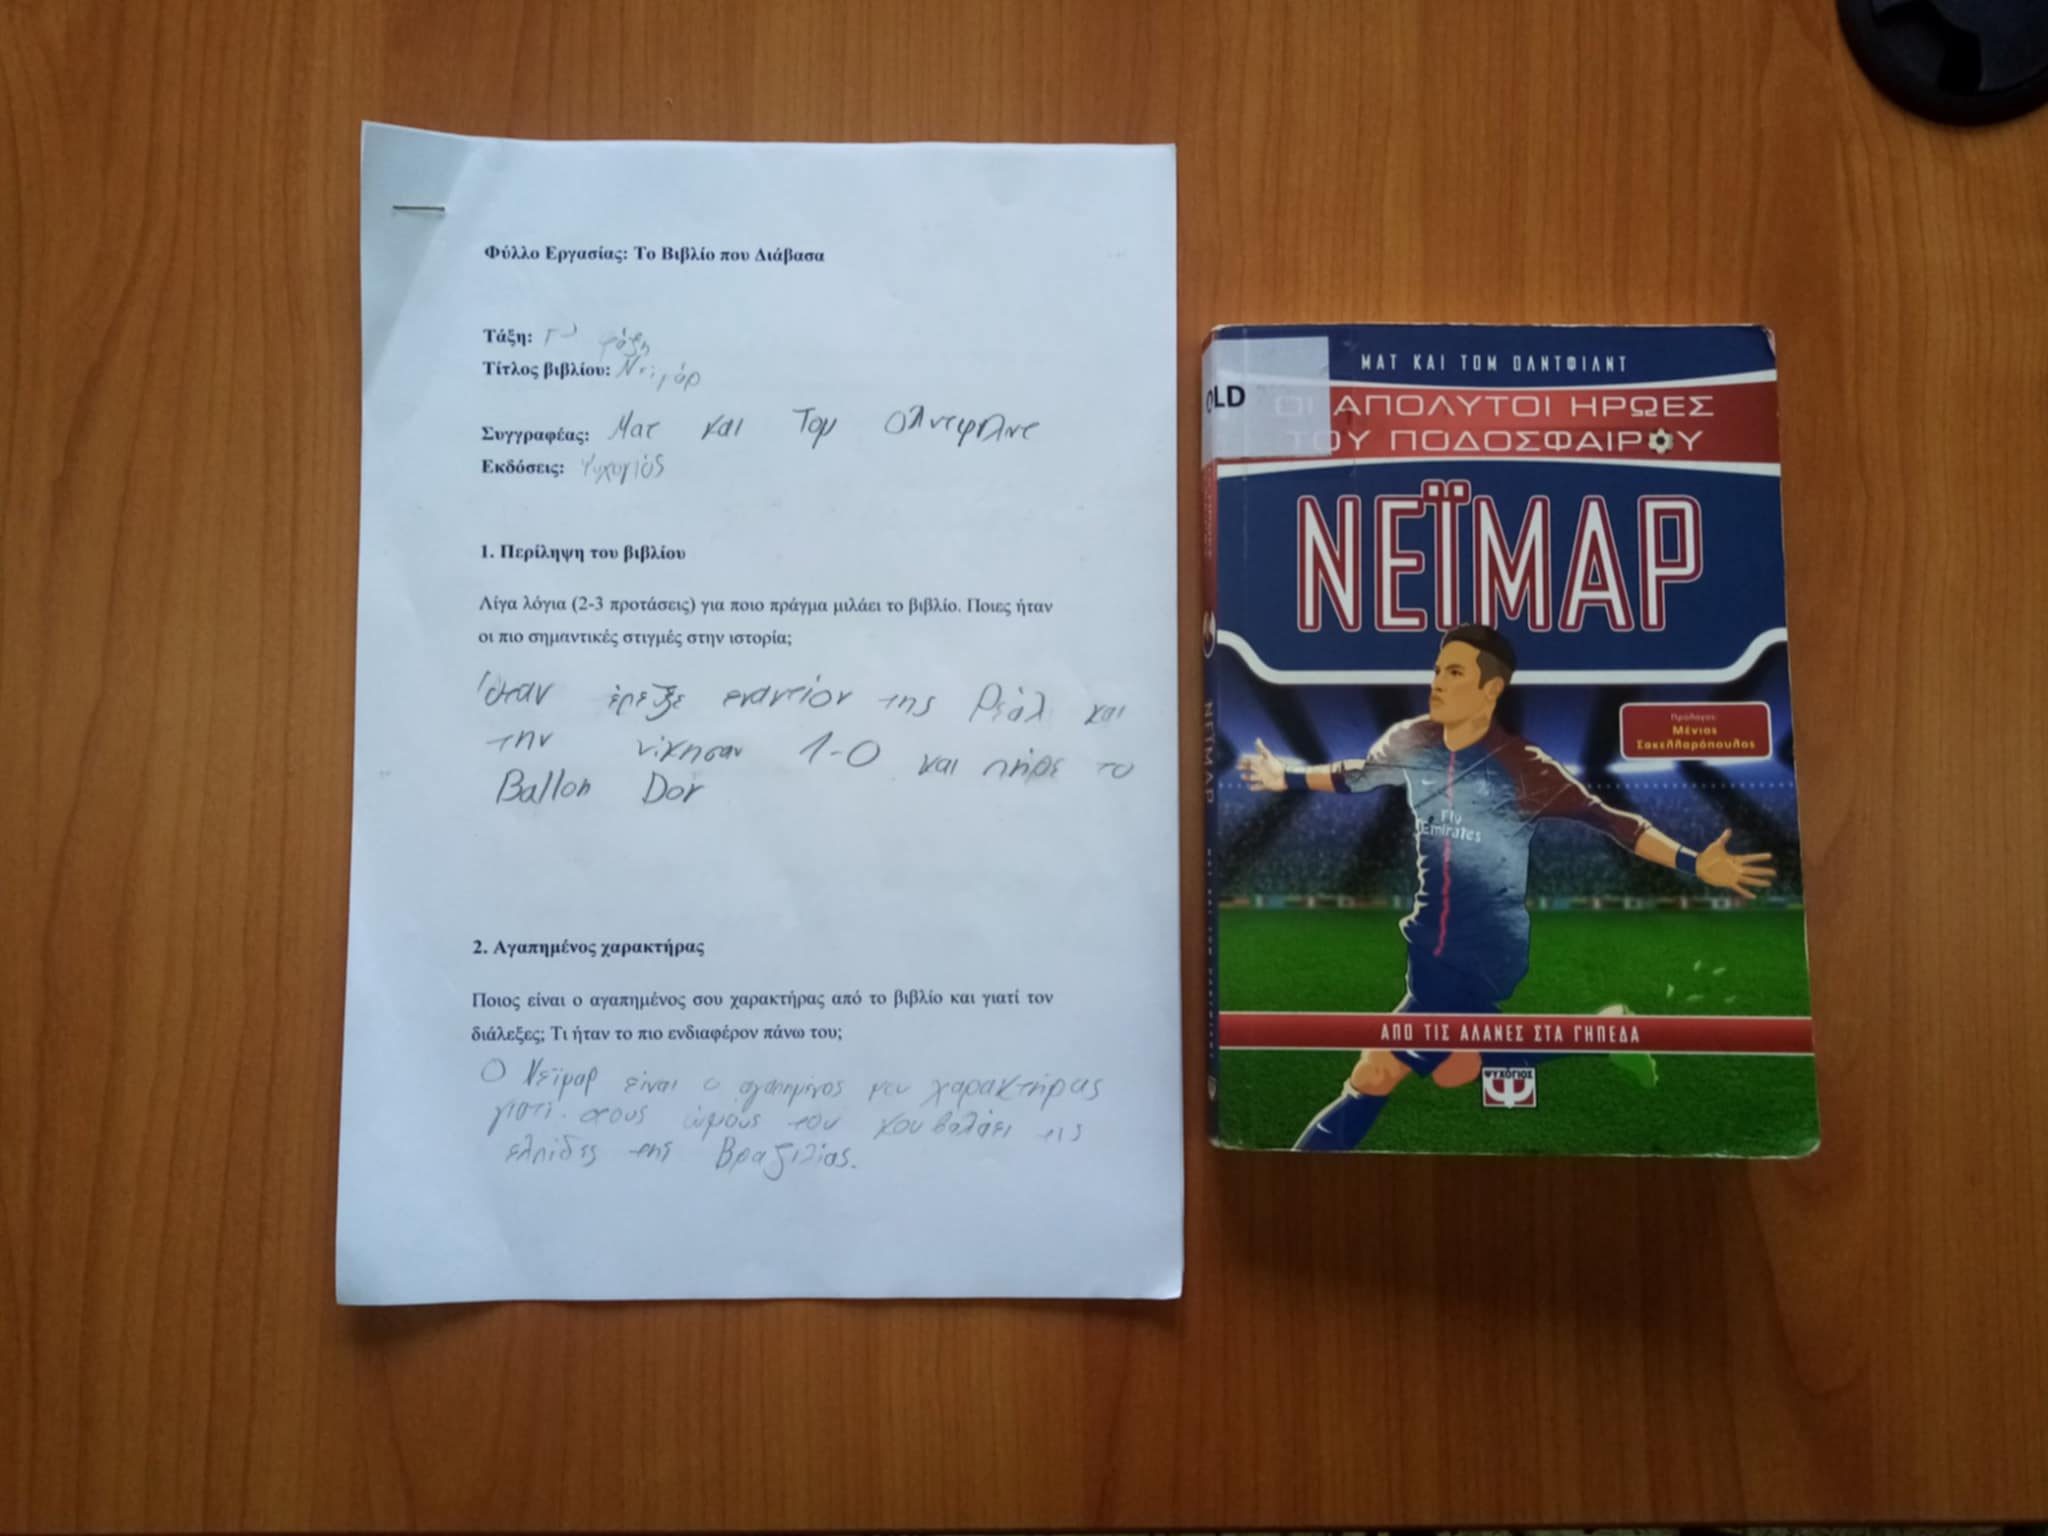 Φύλλο Εργασίας: Το Βιβλίο που Διάβασα
Τάξη: Γ' τάξη
Τίτλος βιβλίου: Νεϊμάρ
Συγγραφέας: Ματ και Τομ
Εκδόσεις: Ψυχογιός
1. Περίληψη του βιβλίου
Λίγα λόγια (2-3 προτάσεις) για ποιο πράγμα μιλάει το βιβλίο. Ποιες ήταν
οι πιο σημαντικές στιγμές στην ιστορία;
Όταν έρεξε εναντίον της Ρεάλ και
την νίκησαν 1-0 και πήρε το
Ballon Dor
2. Αγαπημένος χαρακτήρας
Ποιος είναι ο αγαπημένος σου χαρακτήρας από το βιβλίο και γιατί τον
διάλεξες; Τι ήταν το πιο ενδιαφέρον πάνω του;
Ο Νεϊμαρ είναι ο αγαπημένος μου χαρακτήρας
γιατί στους ώμους του κουβαλάει τις
ελπίδες της Βραζιλίας.
ΜΑΤ ΚΑΙ ΤΟΜ ΟΛΝΤΦΙΛΝΤ
OLD
ΟΙ ΑΠΟΛΥΤΟΙ ΗΡΩΕΣ
ΤΟΥ ΠΟΔΟΣΦΑΙΡΟΥ
ΝΕΪΜΑΡ
Πρόλογος:
Μένιος
Σακελλαρόπουλος
Fly
Emirates
ΑΠΟ ΤΙΣ ΑΛΑΝΕΣ ΣΤΑ ΓΗΠΕΔΑ
ΨΥΧΟΓΙΟΣ
ΝΕΪΜΑΡ